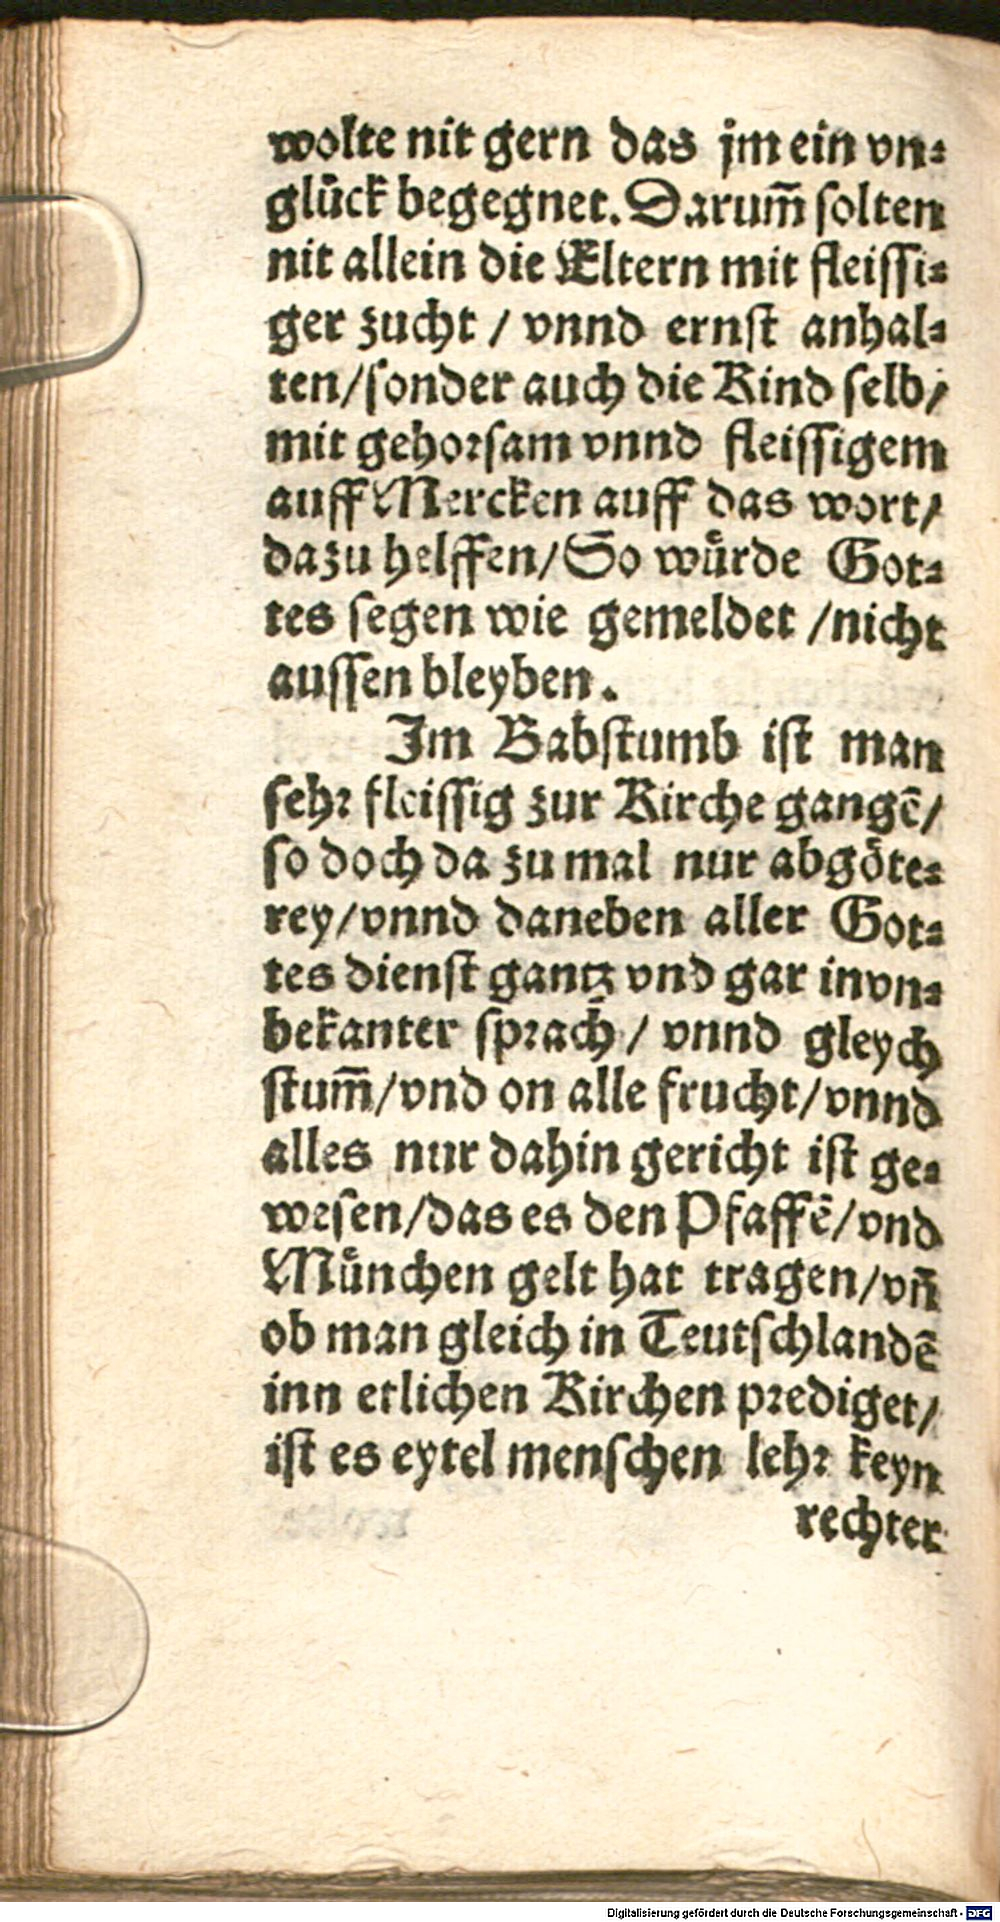 wolte nit gern das jm ein vn⸗
glück begegnet. Darum̃ solten
nit allein die Eltern mit fleissi⸗
ger zucht / vnnd ernst anhal⸗
ten/sonder auch die Kind selb/
mit gehorsam vnnd fleissigem
auff Mercken auff das wort/
dazu helffen/So wuͤrde Got⸗
tes segen wie gemeldet /nicht
aussen bleyben.
Im Babstumb ist man
sehr fleissig zur Kirche gangẽ/
so doch da zu mal nur abgöte⸗
rey/vnnd daneben aller Got⸗
tes dienst gantz vnd gar in vn⸗
bekanter sprach / vnnd gleych
stum̃/vnd on alle frucht/vnnd
alles nur dahin gericht ist ge⸗
wesen/das es den Pfaffẽ/vnd
Muͤnchen gelt hat tragen/vñ
ob man gleich in Teutschlandẽ
inn etlichen Kirchen prediget/
ist es eytel menschen lehr keyn
rechter
Digitalisierung gefördert durch die Deutsche Forschungsgemeinschaft - DFG